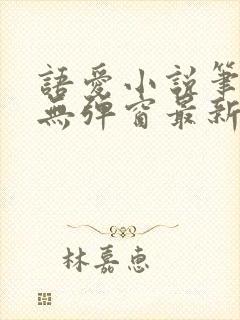 語愛小說筆
無彈窗最新
林嘉惠